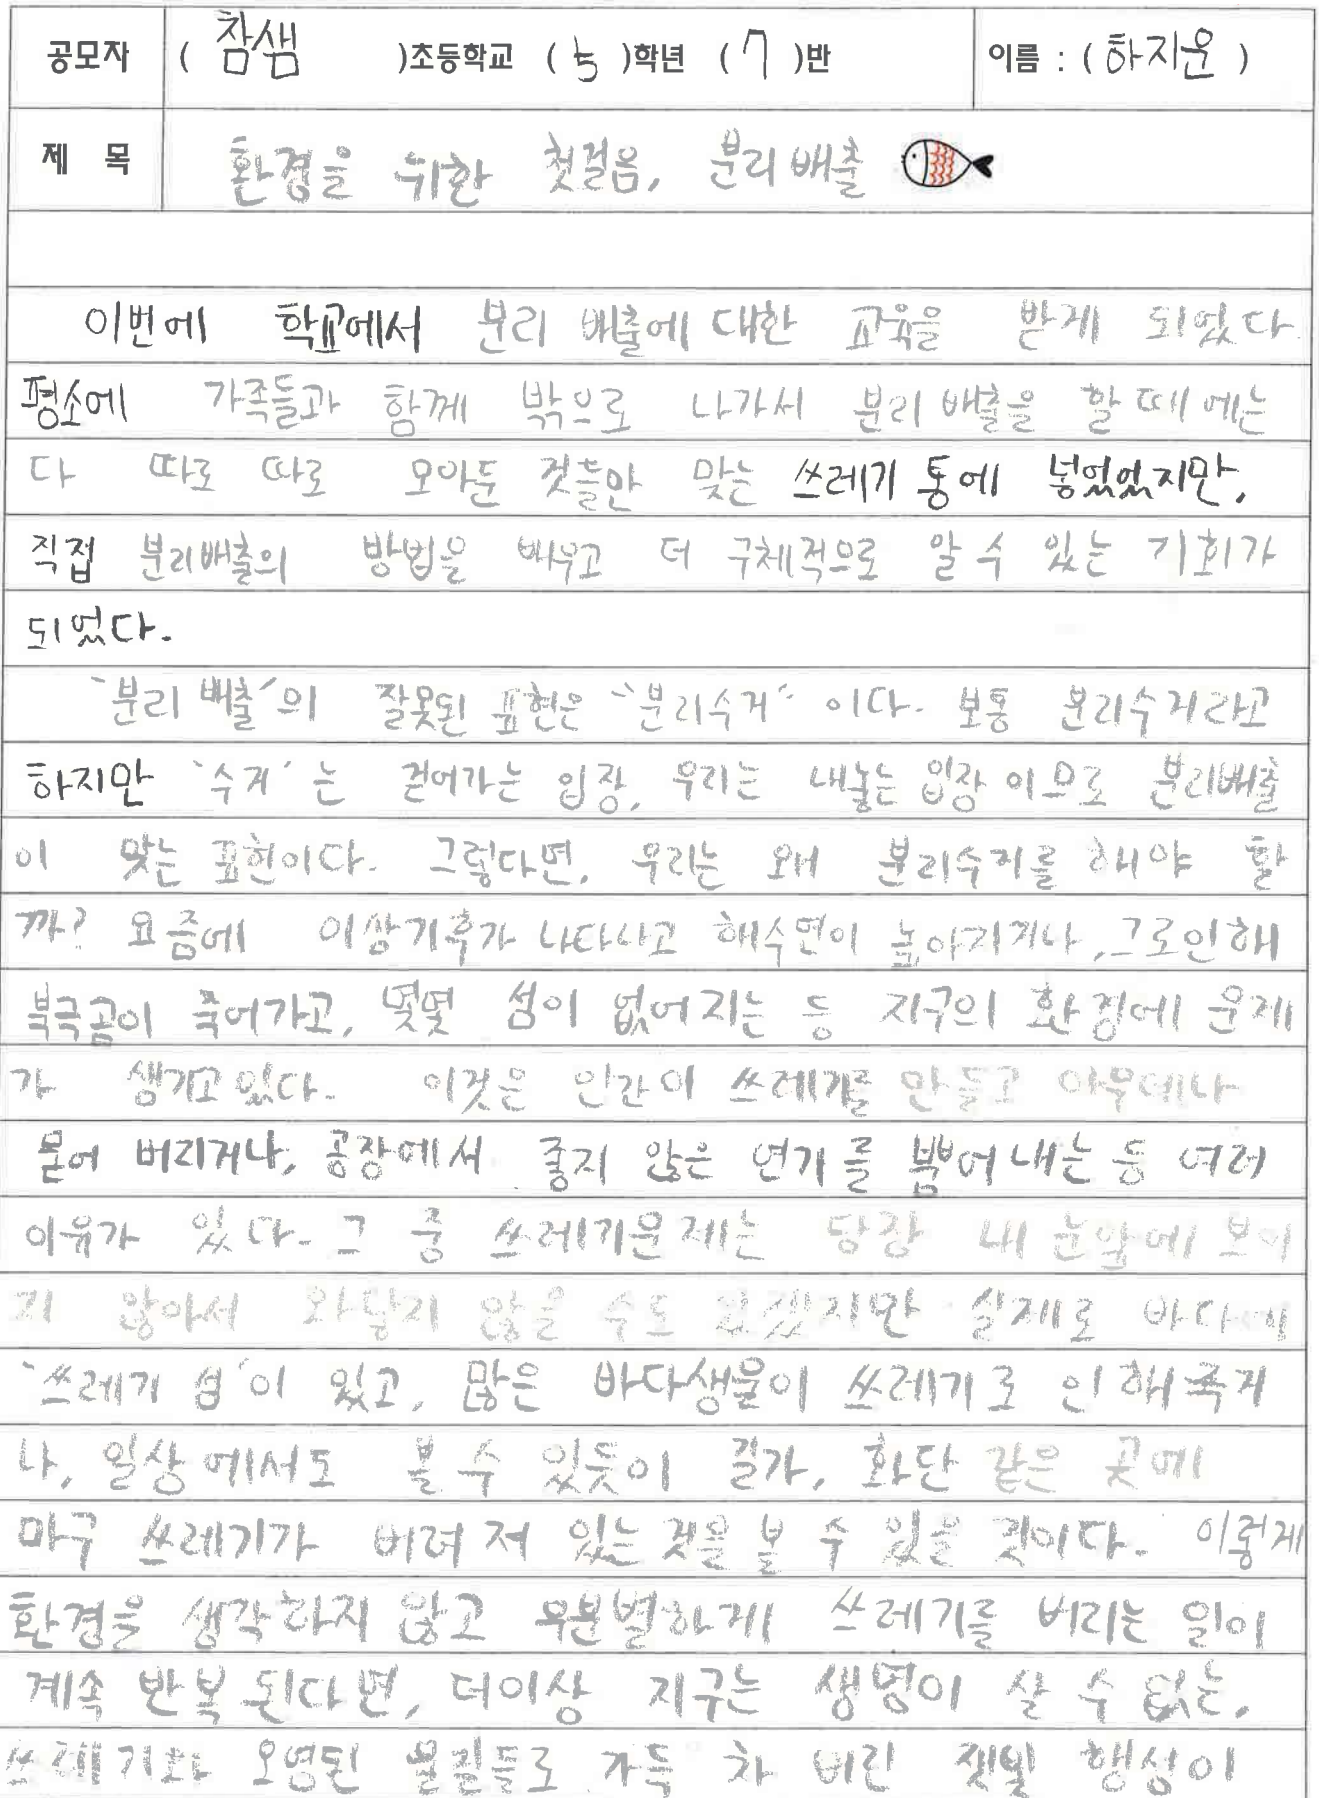 공모자 ( 참샘 )초등학교 ( 5 )학년 ( 7 )반 이름 : ( 하지운 )
제 목 환경을 위한 첫걸음, 분리배출
이번에 학교에서 분리 배출에 대한 교육을 받게 되었다.
평소에 가족들과 함께 밖으로 나가서 분리 배출을 할 때에는
다 따로 따로 모아둔 것들만 맞는 쓰레기 통에 넣었었지만,
직접 분리배출의 방법을 배우고 더 구체적으로 알 수 있는 기회가
되었다.
`분리 배출´의 잘못된 표현은 "분리수거" 이다. 보통 분리수거라고
하지만 `수거´는 걷어가는 입장, 우리는 내놓는 입장 이므로 분리배출
이 맞는 표현이다. 그렇다면, 우리는 왜 분리수거를 해야 할
까? 요즘에 이상기후가 나타나고 해수면이 높아지거나, 그로인해
북극곰이 죽어가고, 몇몇 섬이 없어지는 등 지구의 환경에 문제
가 생기고 있다. 이것은 인간이 쓰레기를 만들고 아무데나
묻어 버리거나, 공장에서 좋지 않은 연기를 뿜어 내는 등 여러
이유가 있다. 그 중 쓰레기문제는 당장 내 눈앞에 보이
지 않아서 와닿지 않을 수도 있겠지만 실제로 바다에
`쓰레기 섬´이 있고, 많은 바다생물이 쓰레기로 인해 죽거
나, 일상에서도 볼 수 있듯이 길가, 화단 같은 곳에
마구 쓰레기가 버려 져 있는 것을 볼 수 있을 것이다. 이렇게
환경을 생각하지 않고 무분별하게 쓰레기를 버리는 일이
계속 반복 된다면, 더이상 지구는 생명이 살 수 없는,
쓰레기와 오염된 물질들로 가득 차 버린 잿빛 행성이